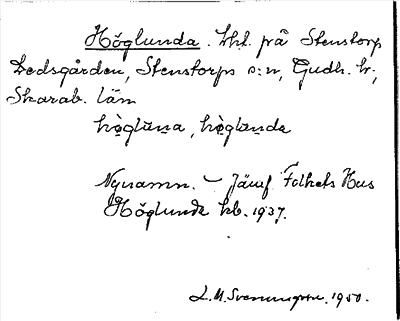 Höglunda. lht. på Stenstorp
Dedsgården, Stenstorps s:n, Gudh. hr,
Skarab. län
hö̀glūna, hö̀glunda
Nynamn. – Jämf Folkets Hus
Höglunda kb. 1937.
L.M. Svenungsson. 1950.